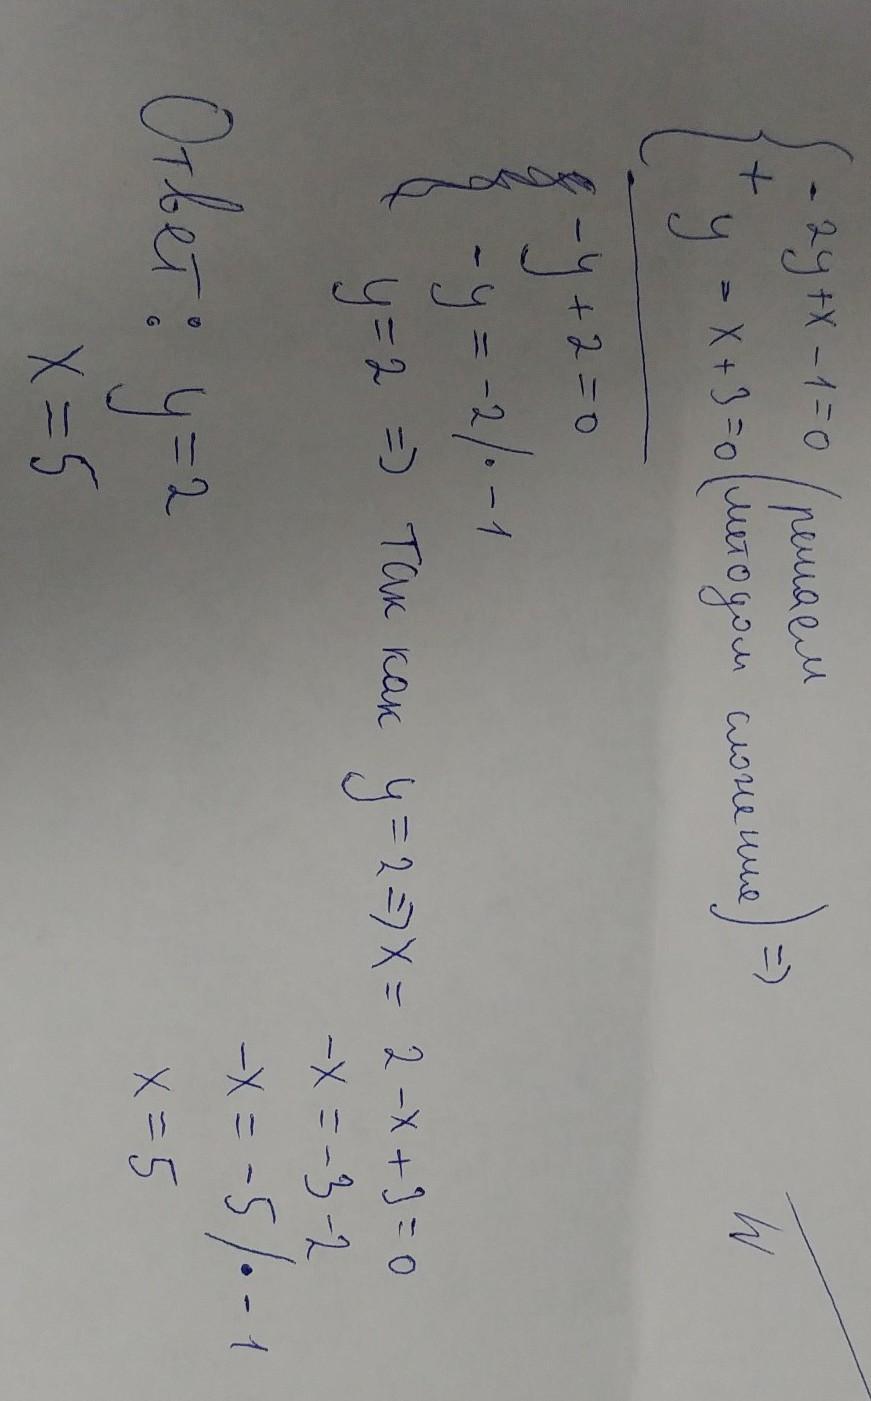 - 2y + x - 1 = 0 (решаем
+ y - x + 3 = 0 (методом сложение) =>
-y + 2 = 0
-y = -2 / · -1
y = 2 => так как y = 2 => x = 2 - x + 3 = 0
-x = -3 -2
-x = -5 / · -1
x = 5
Ответ: y = 2
x = 5